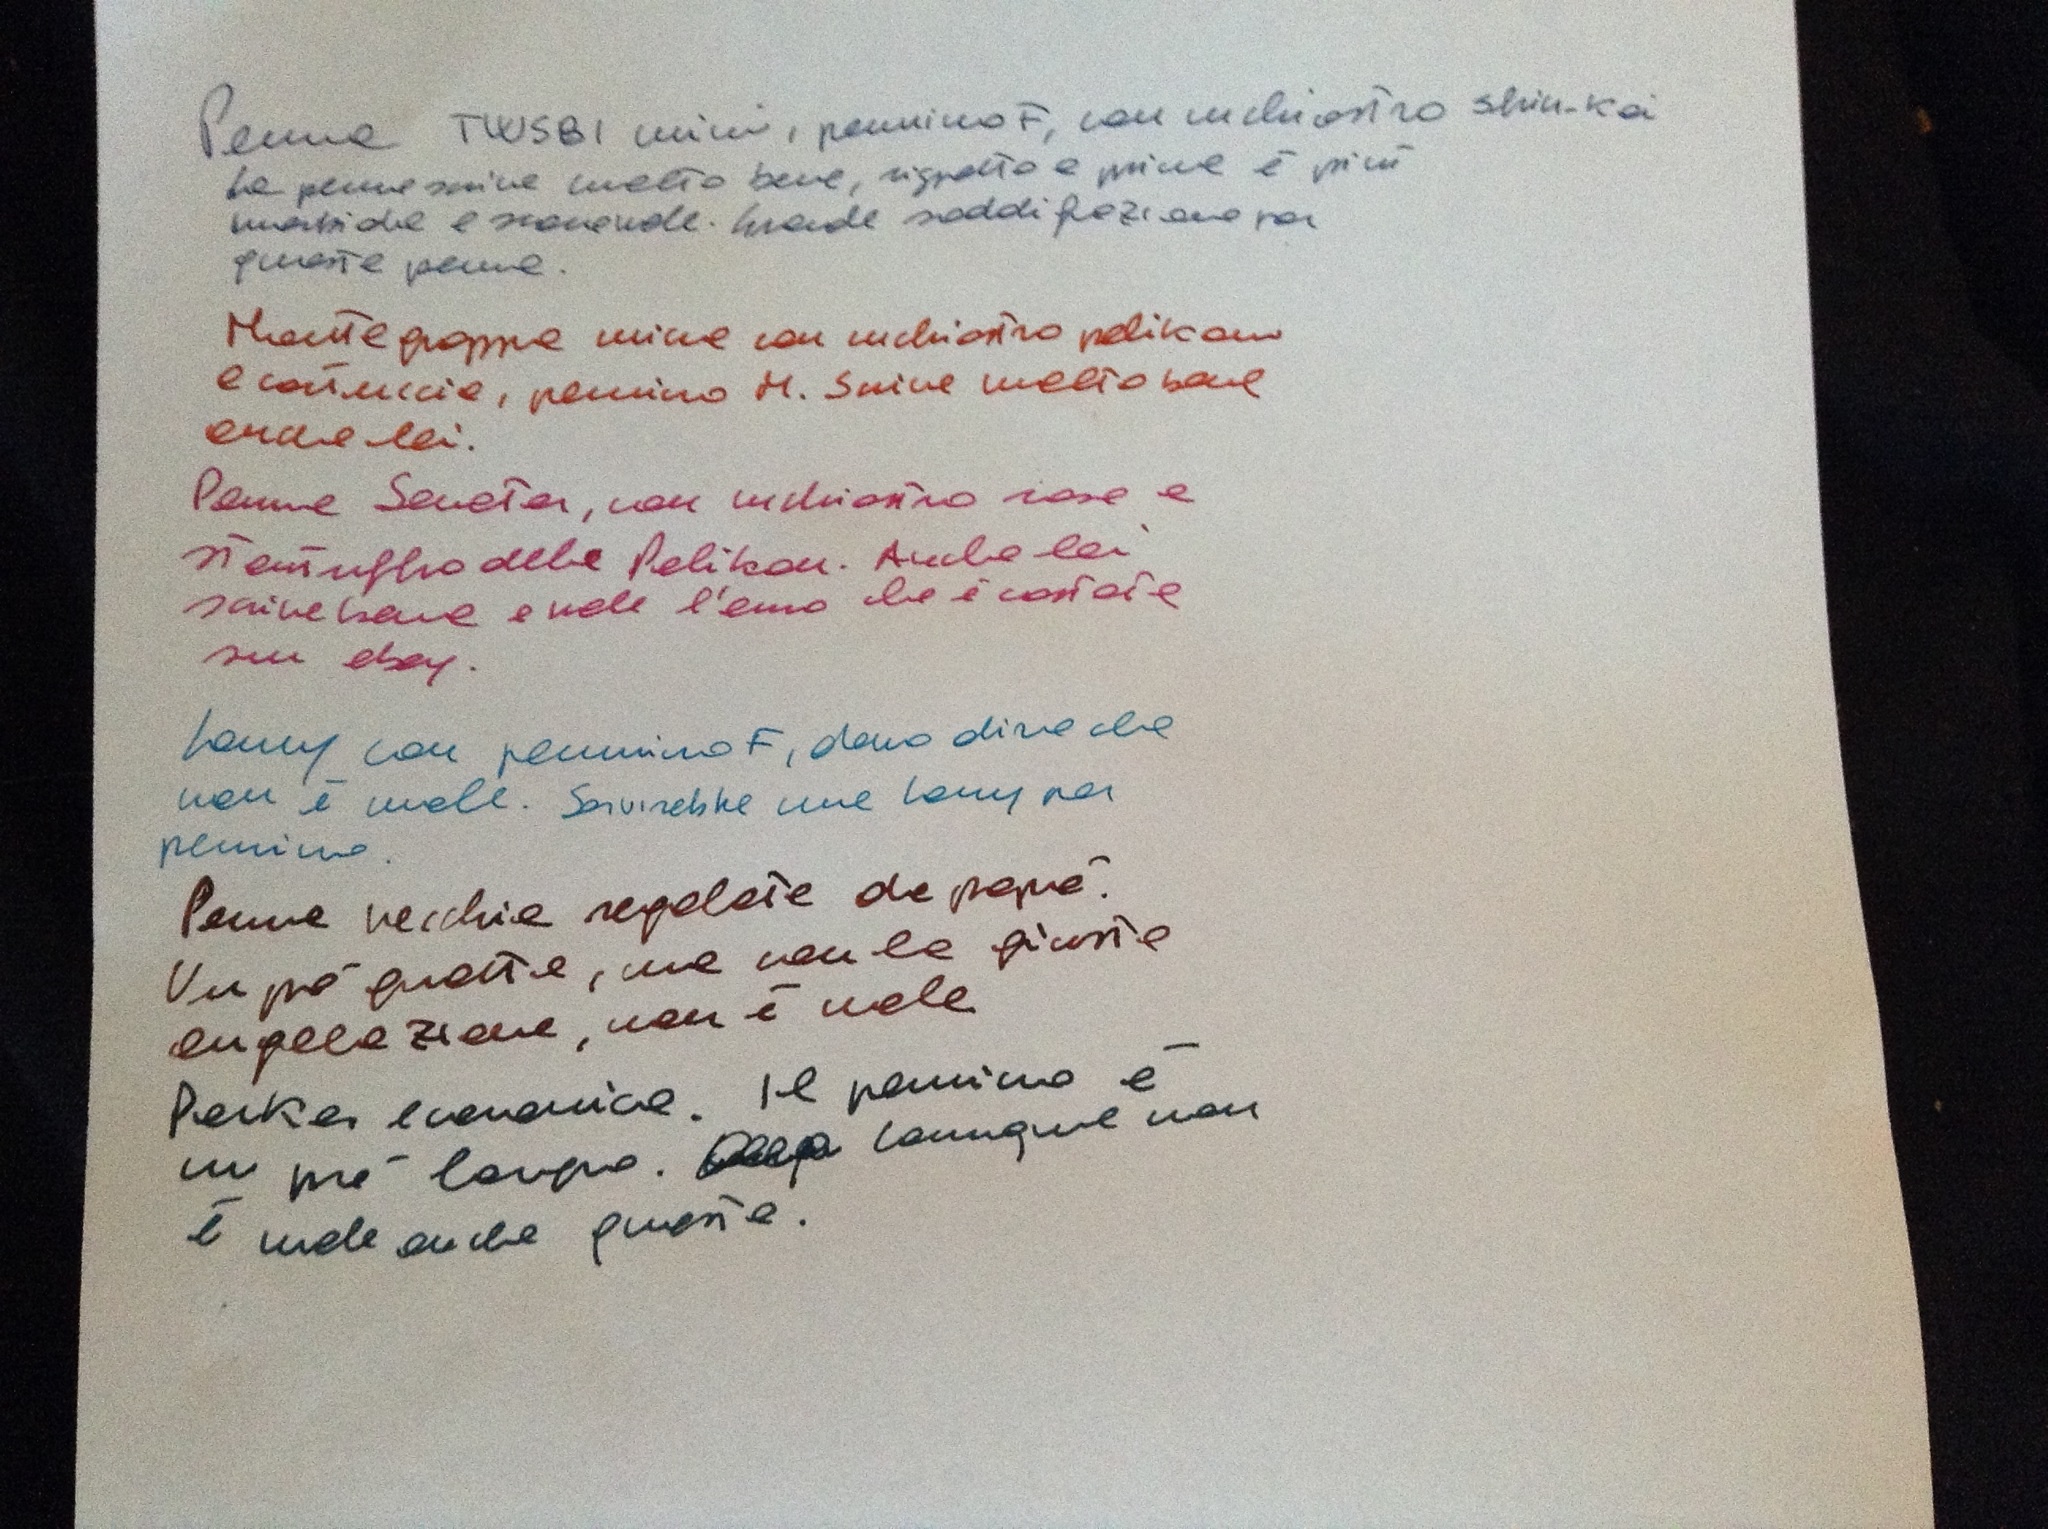 Penna TWSBI mini, pennino F, con inchiostro Shin-kai
La penna scrive molto bene, rispetto a prima è più
morbida e scorrevole. Grande soddisfazione per
questa penna.
Montegrappa mina con inchiostro pelikan
a cartuccia, pennino M. Scrive molto bene
anche lei.
Penna Senator, con inchiostro rosa a
stantuffo della Pelikan. Anche lei
scrive bene e vale l'euro che è costata
su ebay.
Lamy con pennino F, devo dire che
non è male. Servirebbe una Lamy per
pennino.
Penna vecchia regalata da papà.
Un pò gratta, ma con la giusta
angolazione, non è male
Parker economica. Il pennino è
un pò largo. Comunque non
è male anche questa.